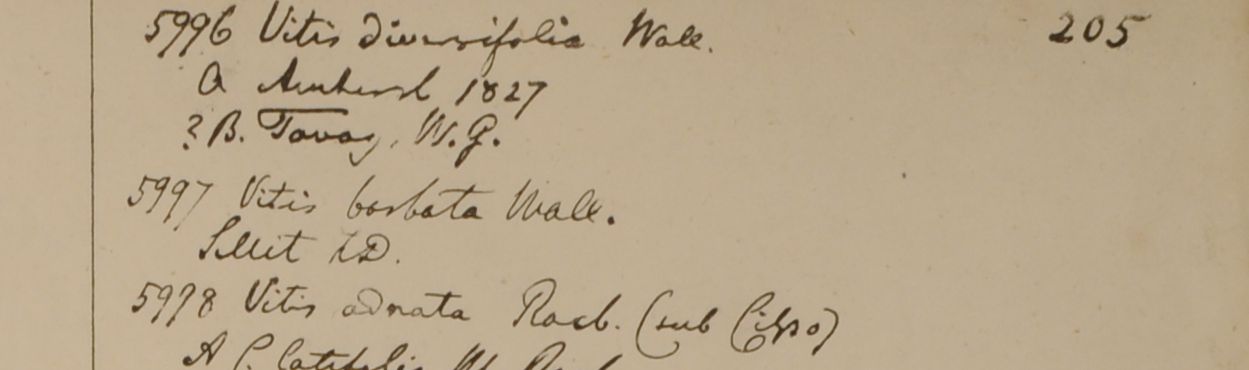 5996 Vitis diversifolia Wall. 205
A Amherst 1827
? B. Tavoy, W.G.
5997 Vitis barbata Wall.
Sillet FD.
5998 Vitis adnata Roxb. (sub Cisso)
A C. latifolia